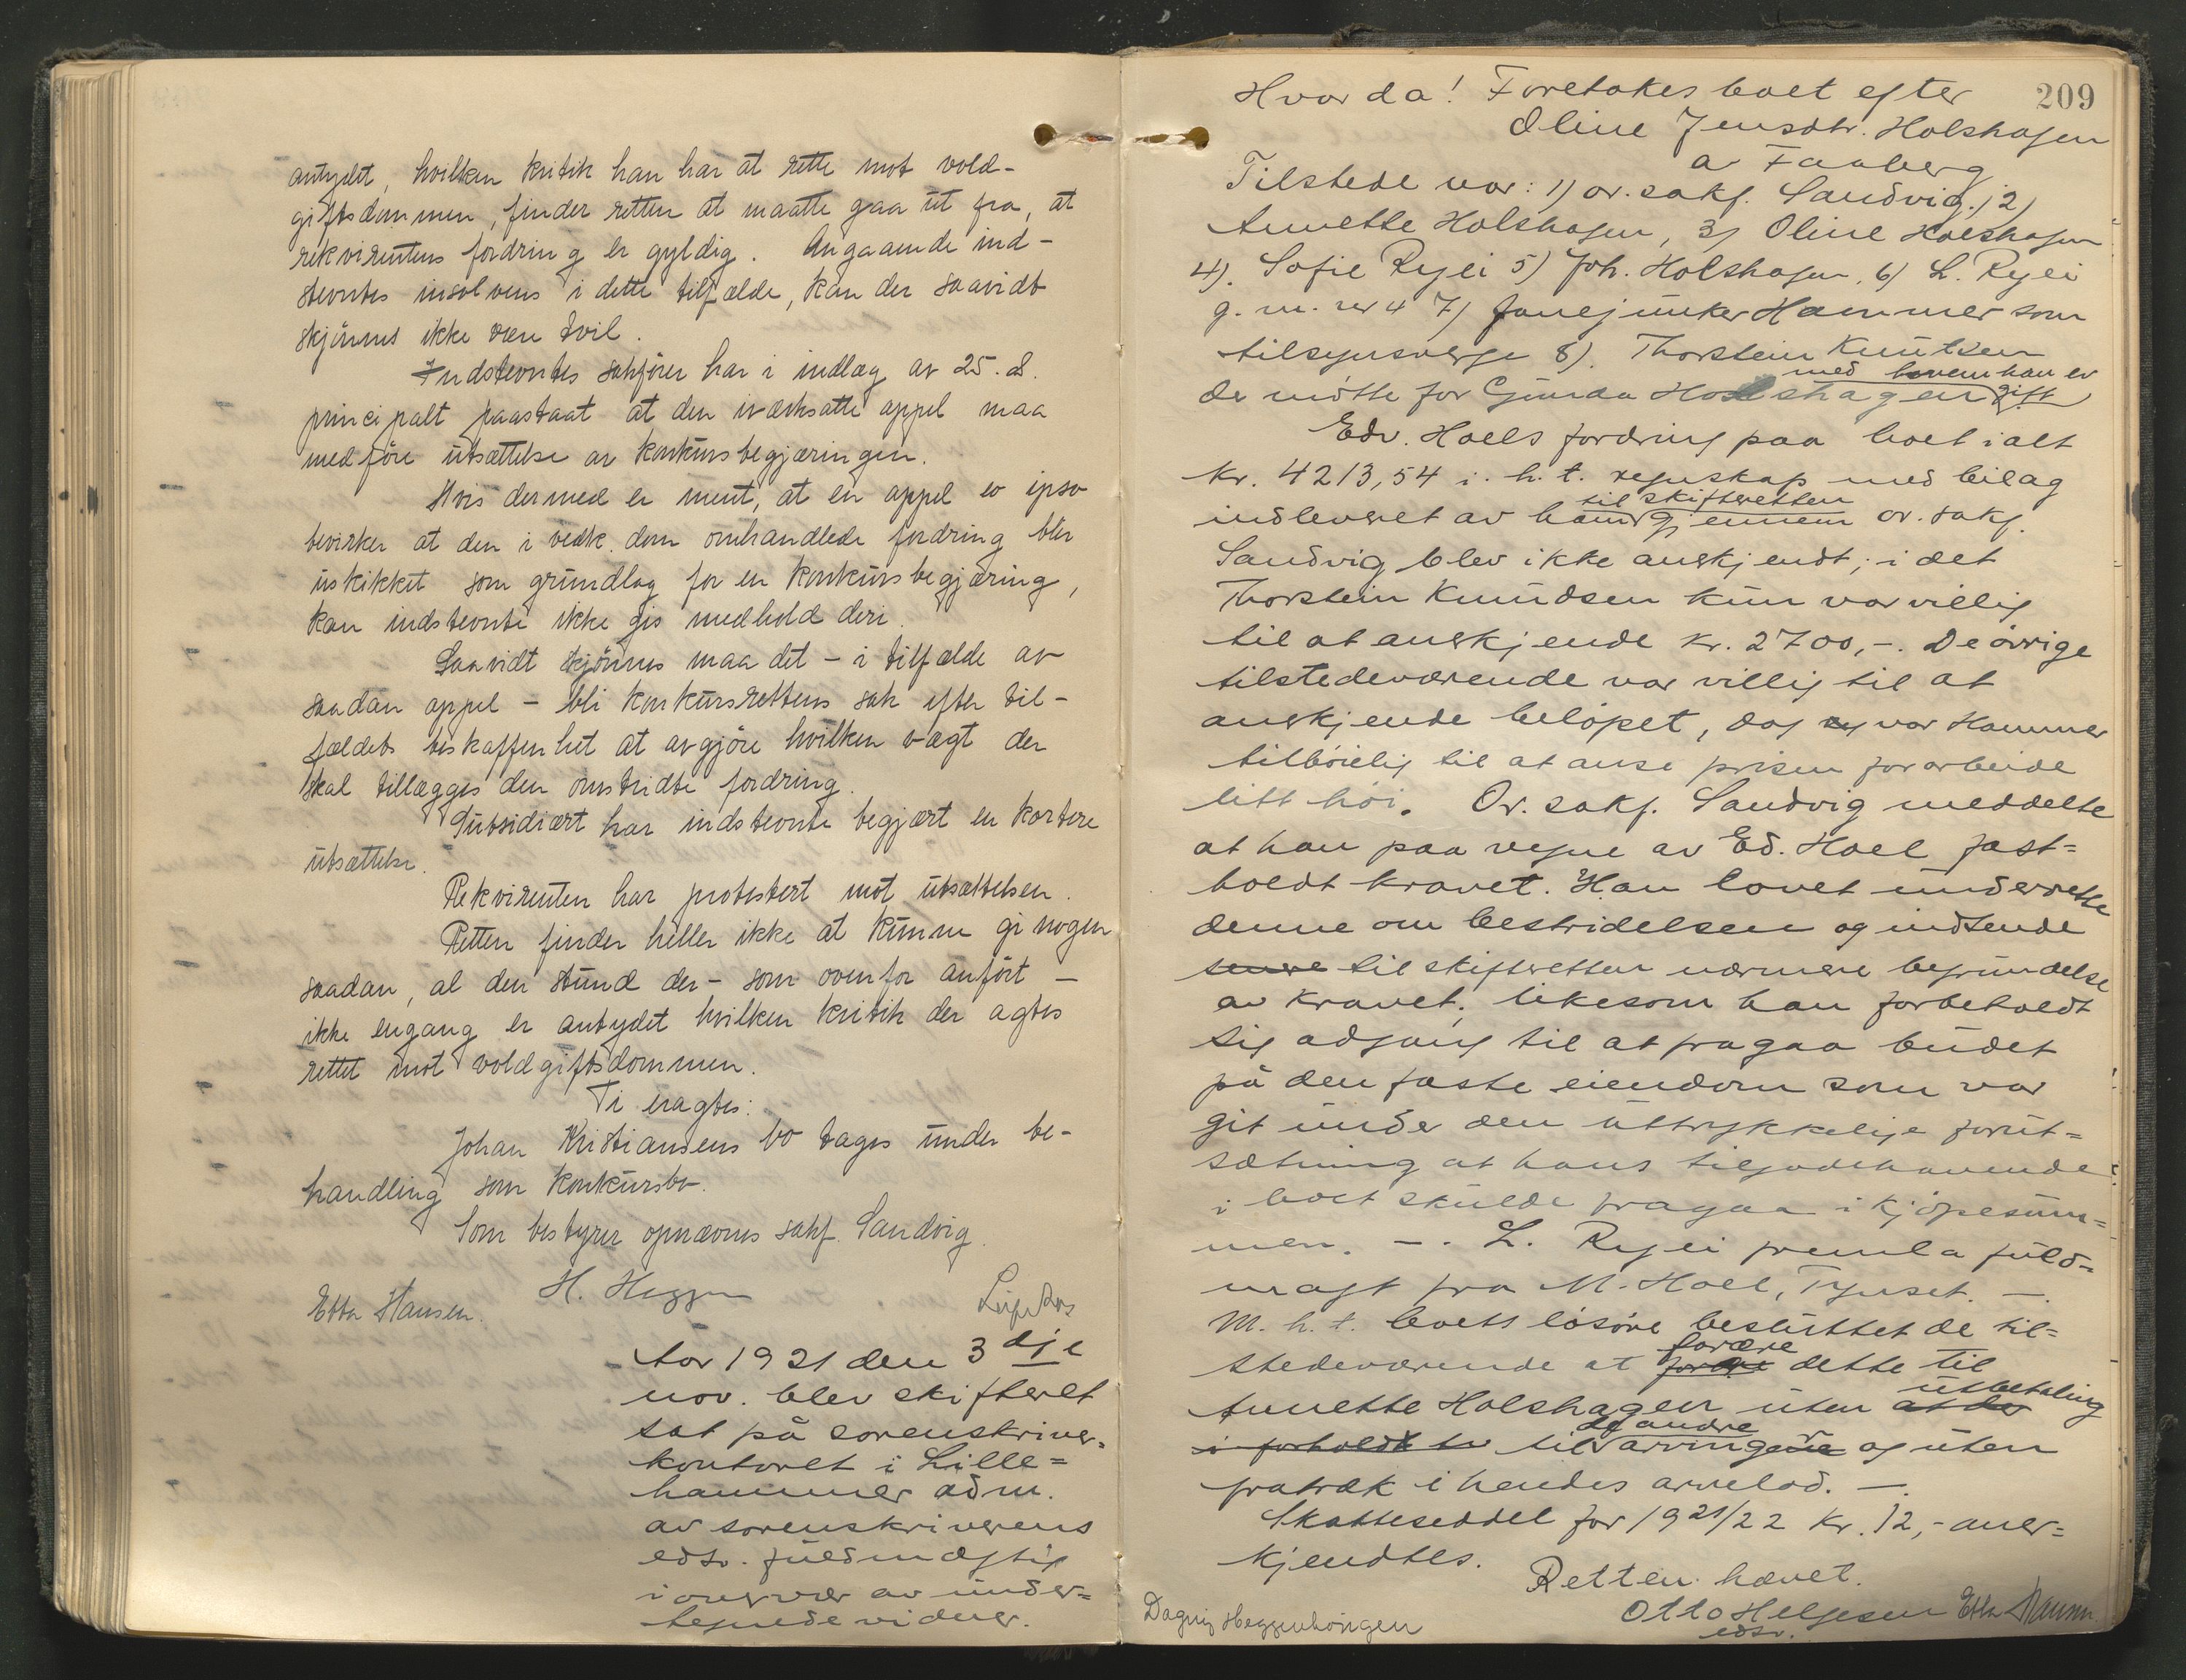 antydet, hvilken kritik han har at rette mot vold-
giftsdommen, finder retten at maatte gaa ut fra, at
rekvirentens fordring er gyldig. Angaaende ind-
stevntes insolvens i dette tilfælde, kan der saavidt
skjönnes ikke være tvil.
Indstevntes sakförer har i indlæg av 25. ds.
principalt paastaat at den iverksatte appel maa
medföre utsættelse av konkursbegjæringen.
Hvis dermed er ment, at en appel eo ipso
bevirker at den i vedk. dom omhandlede fordring blir
uskikket som grundlag for en konkursbegjæring,
kan indstevnte ikke gis medhold deri.
Saavidt skjönnes maa det - i tilfælde av
saadan appel - bli konkursrettens sak efter til-
fældets beskaffenhet at avgjöre hvilken vægt der
skal tillægges den omstridte fordring.
Subsidiært har indstevnte begjært en kortere
utsættelse.
Rekvirenten har protestert mot utsættelsen.
Retten finder heller ikke at kunne gi nogen
saadan, al den stund der - som ovenfor anfört -
ikke engang er antydet hvilken kritik der agtes
rettet mot voldgiftsdommen.
Ti eragtes:
Johan Kristiansens bo tages under be-
handling som konkursbo.
Som bestyrer opnævnes sakf. Sandvig.
Ebba Hansen. H. Heggen
Aar 1921 den 3dje
nov. blev skifteret
sat på sorenskriver-
kontoret i Lille=
hammer adm.
av sorenskriverens
edsv. fuldmægtig
i overvær av under=
tegnede vidner.
209
Hvorda! Foretokes boet efter
Oline Jensdtr. Holshagen
av Faaberg
Tilstede var: 1) or. sakf. Sandvig. 2)
Annette Holshagen, 3) Oline Holshagen
4). Sofie Ryei 5) Joh. Holshagen, 6) L. Ryei
g. m. nr 4 7) fanejunker Hammer som
tilsynsverge 8). Thorstein Knutsen
med hvem han er
de mötte for Gunda Holshagen gift
Edv. Hoels fordring paa boet ialt
Kr. 4213,54 i. h. t. regnskap med bilag
til skifteretten
indleveret av ham gjennem or. sakf.
Sandvig blev ikke anerkjendt; i det
Thorstein Knudsen kun var villig
til at anerkjende kr. 2700,-. De övrige
tilstedeværende var villig til at
anerkjende belöpet, dog var Hammer
tilböielig til at anse prisen for arbeide
litt höi. Or. sakf. Sandvig meddelte
at han paa vegne av Ed. Hoel fast=
holdt kravet. Han lovet underrette
denne om bestridelsen og indsende
senere til skifteretten nærmere begrundelse
av kravet, likesom han forbeholdt
sig adgang til at fragaa budet
på den faste eiendom som var
git under den uttrykkelige forut=
sætning at hans tilgodehavende
i boet skulde fragaa i kjöpesum=
men. -. L. Ryei fremla fuld=
magt fra M. Hoel, Tynset. -.
M. h. t. boets lösöre besluttet de til=
forære
stedeværende at dette til
utbetaling
Annette Holshagen uten at der
de andre
i forhold til arvingene og uten
fratræk i hendes arvelod. -.
Skatteseddel for 1921/22 Kr. 12,- aner=
kjendtes.
Retten hævet.
Otto Helgesen Ebba Hansen
edsv.
Dagny Heggenhougen